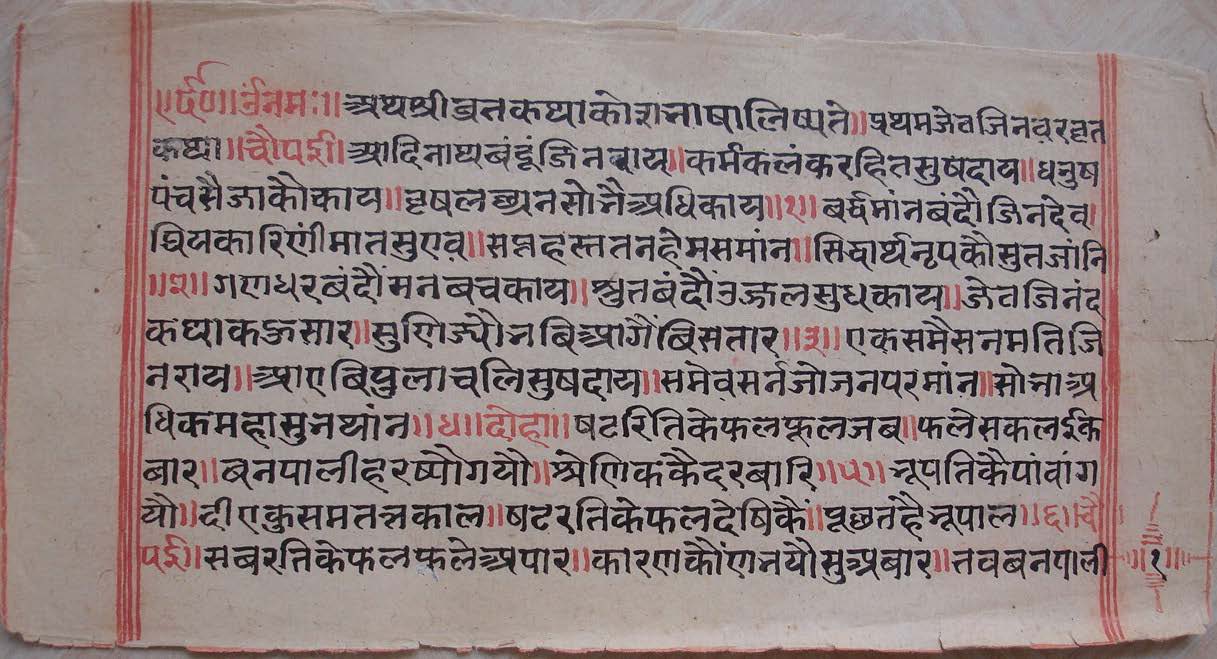 ॥र्द०॥ॐनमः॥अथश्रीव्रतकथाकोशभाषालिष्यते॥प्रथमजेवजिनवरव्रत
कथा॥चौपई॥आदिनाथबंदूंजिनराय॥कर्मकलंकरहितसुषदाय॥धनुष
पंचसैजाकौकाय॥वृषलछ्यनसोभैअधिकाय॥१॥बर्धमांनबंदौजिनदेव॥
प्रियकारिणींमातसुएव॥सप्तहस्ततनहेमसमांन॥सिधार्थनृपकौसुतजांनि
॥२॥गणधरबंदौंमनबचकाय॥श्रुतबंदौंउज्जलसुधकाय॥जेवजिनंद
कथाकऊसार॥सुणिज्यौभबिआगैंबिसतार॥३॥एकसमैसनमतिजि
नराय॥आएबिपुलाचलिसुषदाय॥समेवसर्नजोजनपरमांन॥सोभाअ
धिकमहासुभथांन॥४॥दोहा॥षटरितिकेफलफूलजब॥फलेसकलईक
बार॥बनपालीहरष्यौगयौ॥श्रेणिककैदरबारि॥५॥भूपतिकैपांवांग
यौ॥दीएकुसमततकाल॥षटरतिकेफलदेषिकैं॥पूछतहैभूपाल॥६॥चौ
पई॥सबरतिकेफलफलेअपार॥कारणकौंणभयौसुअबार॥तवबनपाली
॥१॥